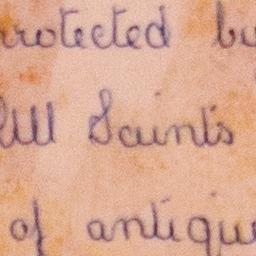 rotected bu
All Saint's
of antiqu